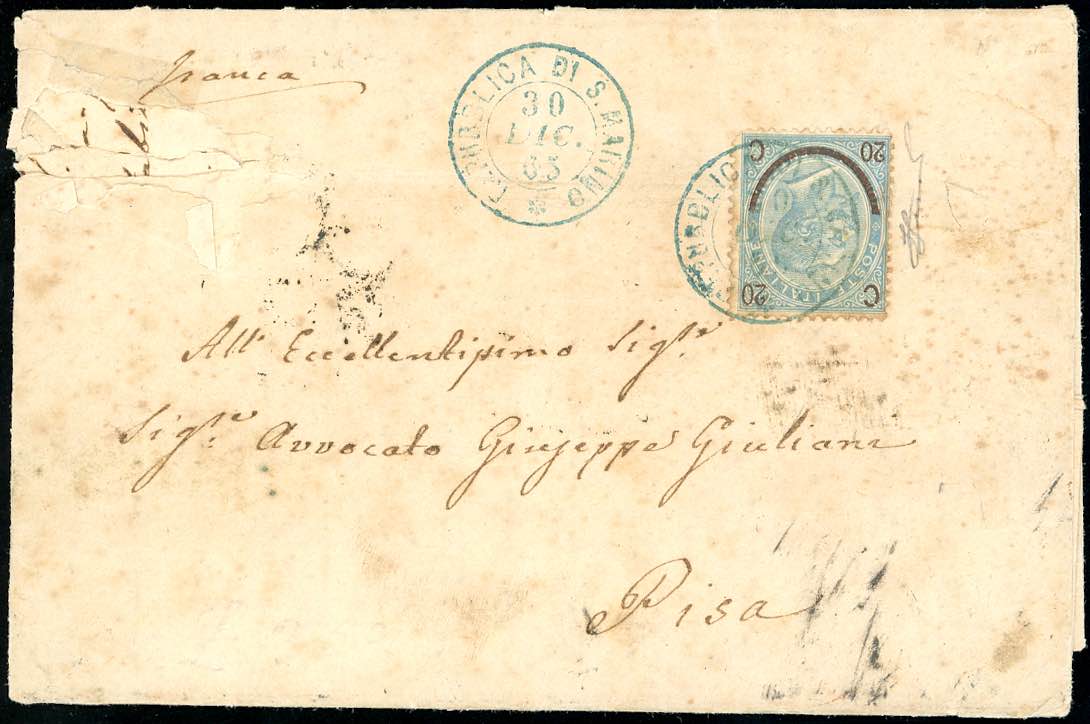 franca
REPUBBLICA DI S. MARINO
30
DIC.
65
REPUBBLICA
C 20
POSTE ITALIANE
20 C
All' Eccellentissimo Sigr.
Sigr. Avvocato Giuseppe Giuliani
Pisa